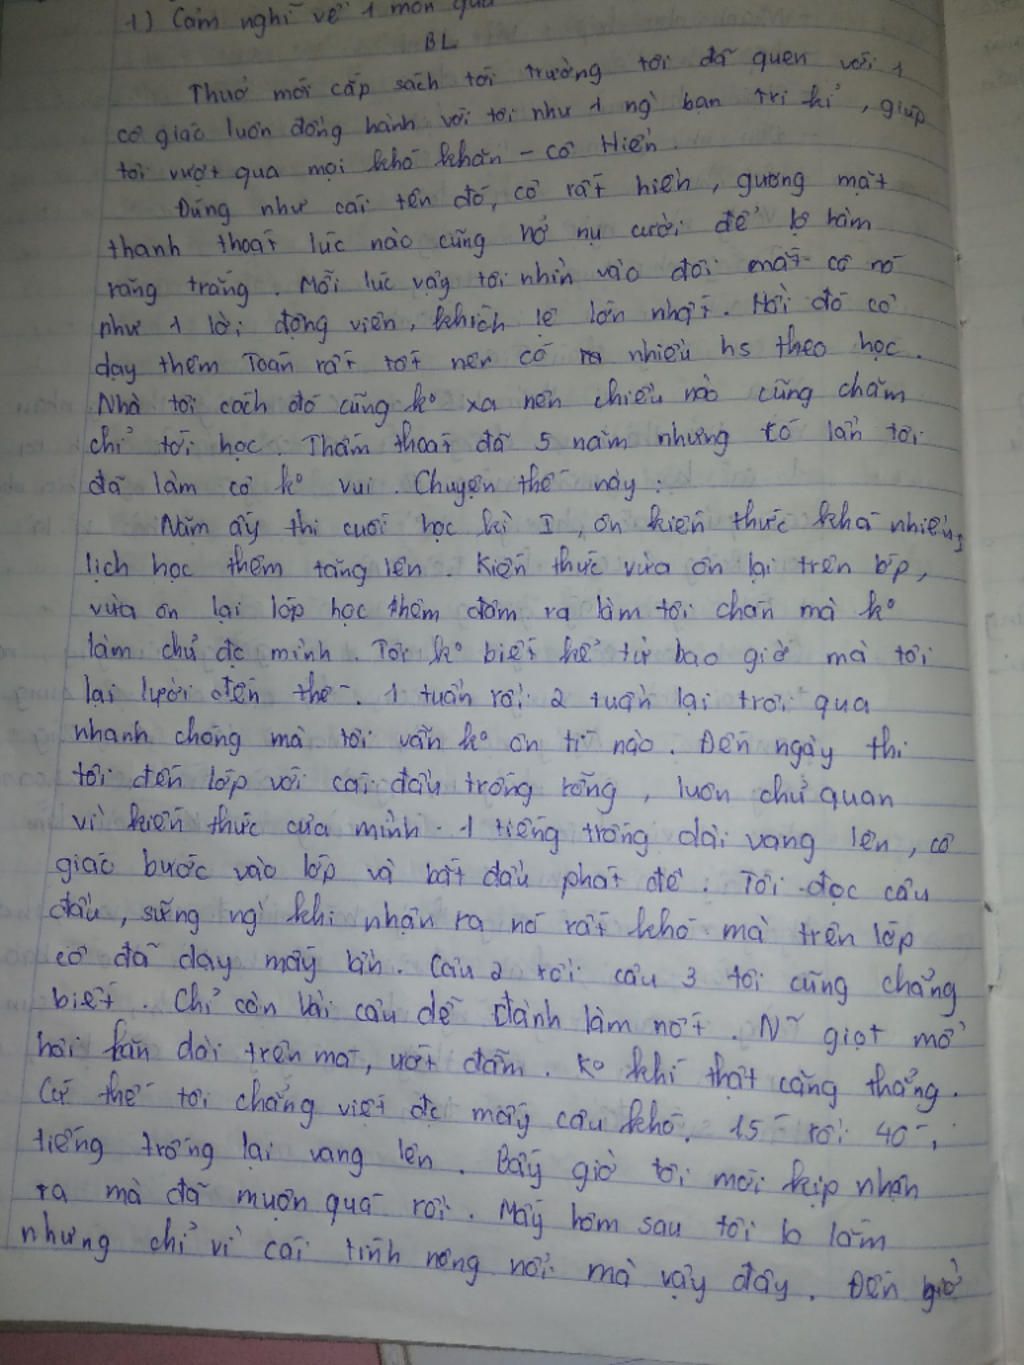 1) Cảm nghĩ về 1 món quà
BL
Thuở mới cắp sách tới trường tôi đã quen với 1
cô giáo luôn đồng hành với tôi như 1 ng` bạn tri kỉ, giúp
tôi vượt qua mọi khó khăn - cô Hiền.
Đúng như cái tên đó, cô rất hiền, gương mặt
thanh thoát lúc nào cũng nở nụ cười để lộ hàm
răng trắng. Mỗi lúc vậy tôi nhìn vào đôi mắt cô nó
như 1 lời động viên, khích lệ lớn nhất. Hồi đó cô
dạy thêm Toán rất tốt nên có nhiều hs theo học.
Nhà tôi cách đó cũng ko xa nên chiều nào cũng chăm
chỉ tới học. Thấm thoát đã 5 năm nhưng có lần tôi
đã làm cô ko vui. Chuyện thế này:
Năm ấy thi cuối học kì I, ôn kiến thức khá nhiều,
lịch học thêm tăng lên. Kiến thức vừa ôn lại trên lớp,
vừa ôn lại lớp học thêm đâm ra làm tôi chán mà ko
làm chủ đc mình. Tôi ko biết kể từ bao giờ mà tôi
lại lười đến thế. 1 tuần rồi 2 tuần lại trôi qua
nhanh chóng mà tôi vẫn ko ôn tí nào. Đến ngày thi
tôi đến lớp với cái đầu trống rỗng, luôn chủ quan
vì kiến thức của mình. 1 tiếng trống dài vang lên, cô
giáo bước vào lớp và bắt đầu phát đề. Tôi đọc câu
đầu, sững ng` khi nhận ra nó rất khó mà trên lớp
cô đã dạy mấy lần. Câu 2 rồi câu 3 tôi cũng chẳng
biết. Chỉ còn vài câu dễ đành làm nốt. N~ giọt mồ
hôi lăn dài trên má, ướt đẫm. Ko khí thật căng thẳng.
Cứ thế tôi chẳng viết đc mấy câu khó. 15' rồi 40',
tiếng trống lại vang lên. Bấy giờ tôi mới kịp nhận
ra mà đã muộn quá rồi. Mấy hôm sau tôi lo lắm
nhưng chỉ vì cái tính nông nổi mà vậy đấy. Đến giờ